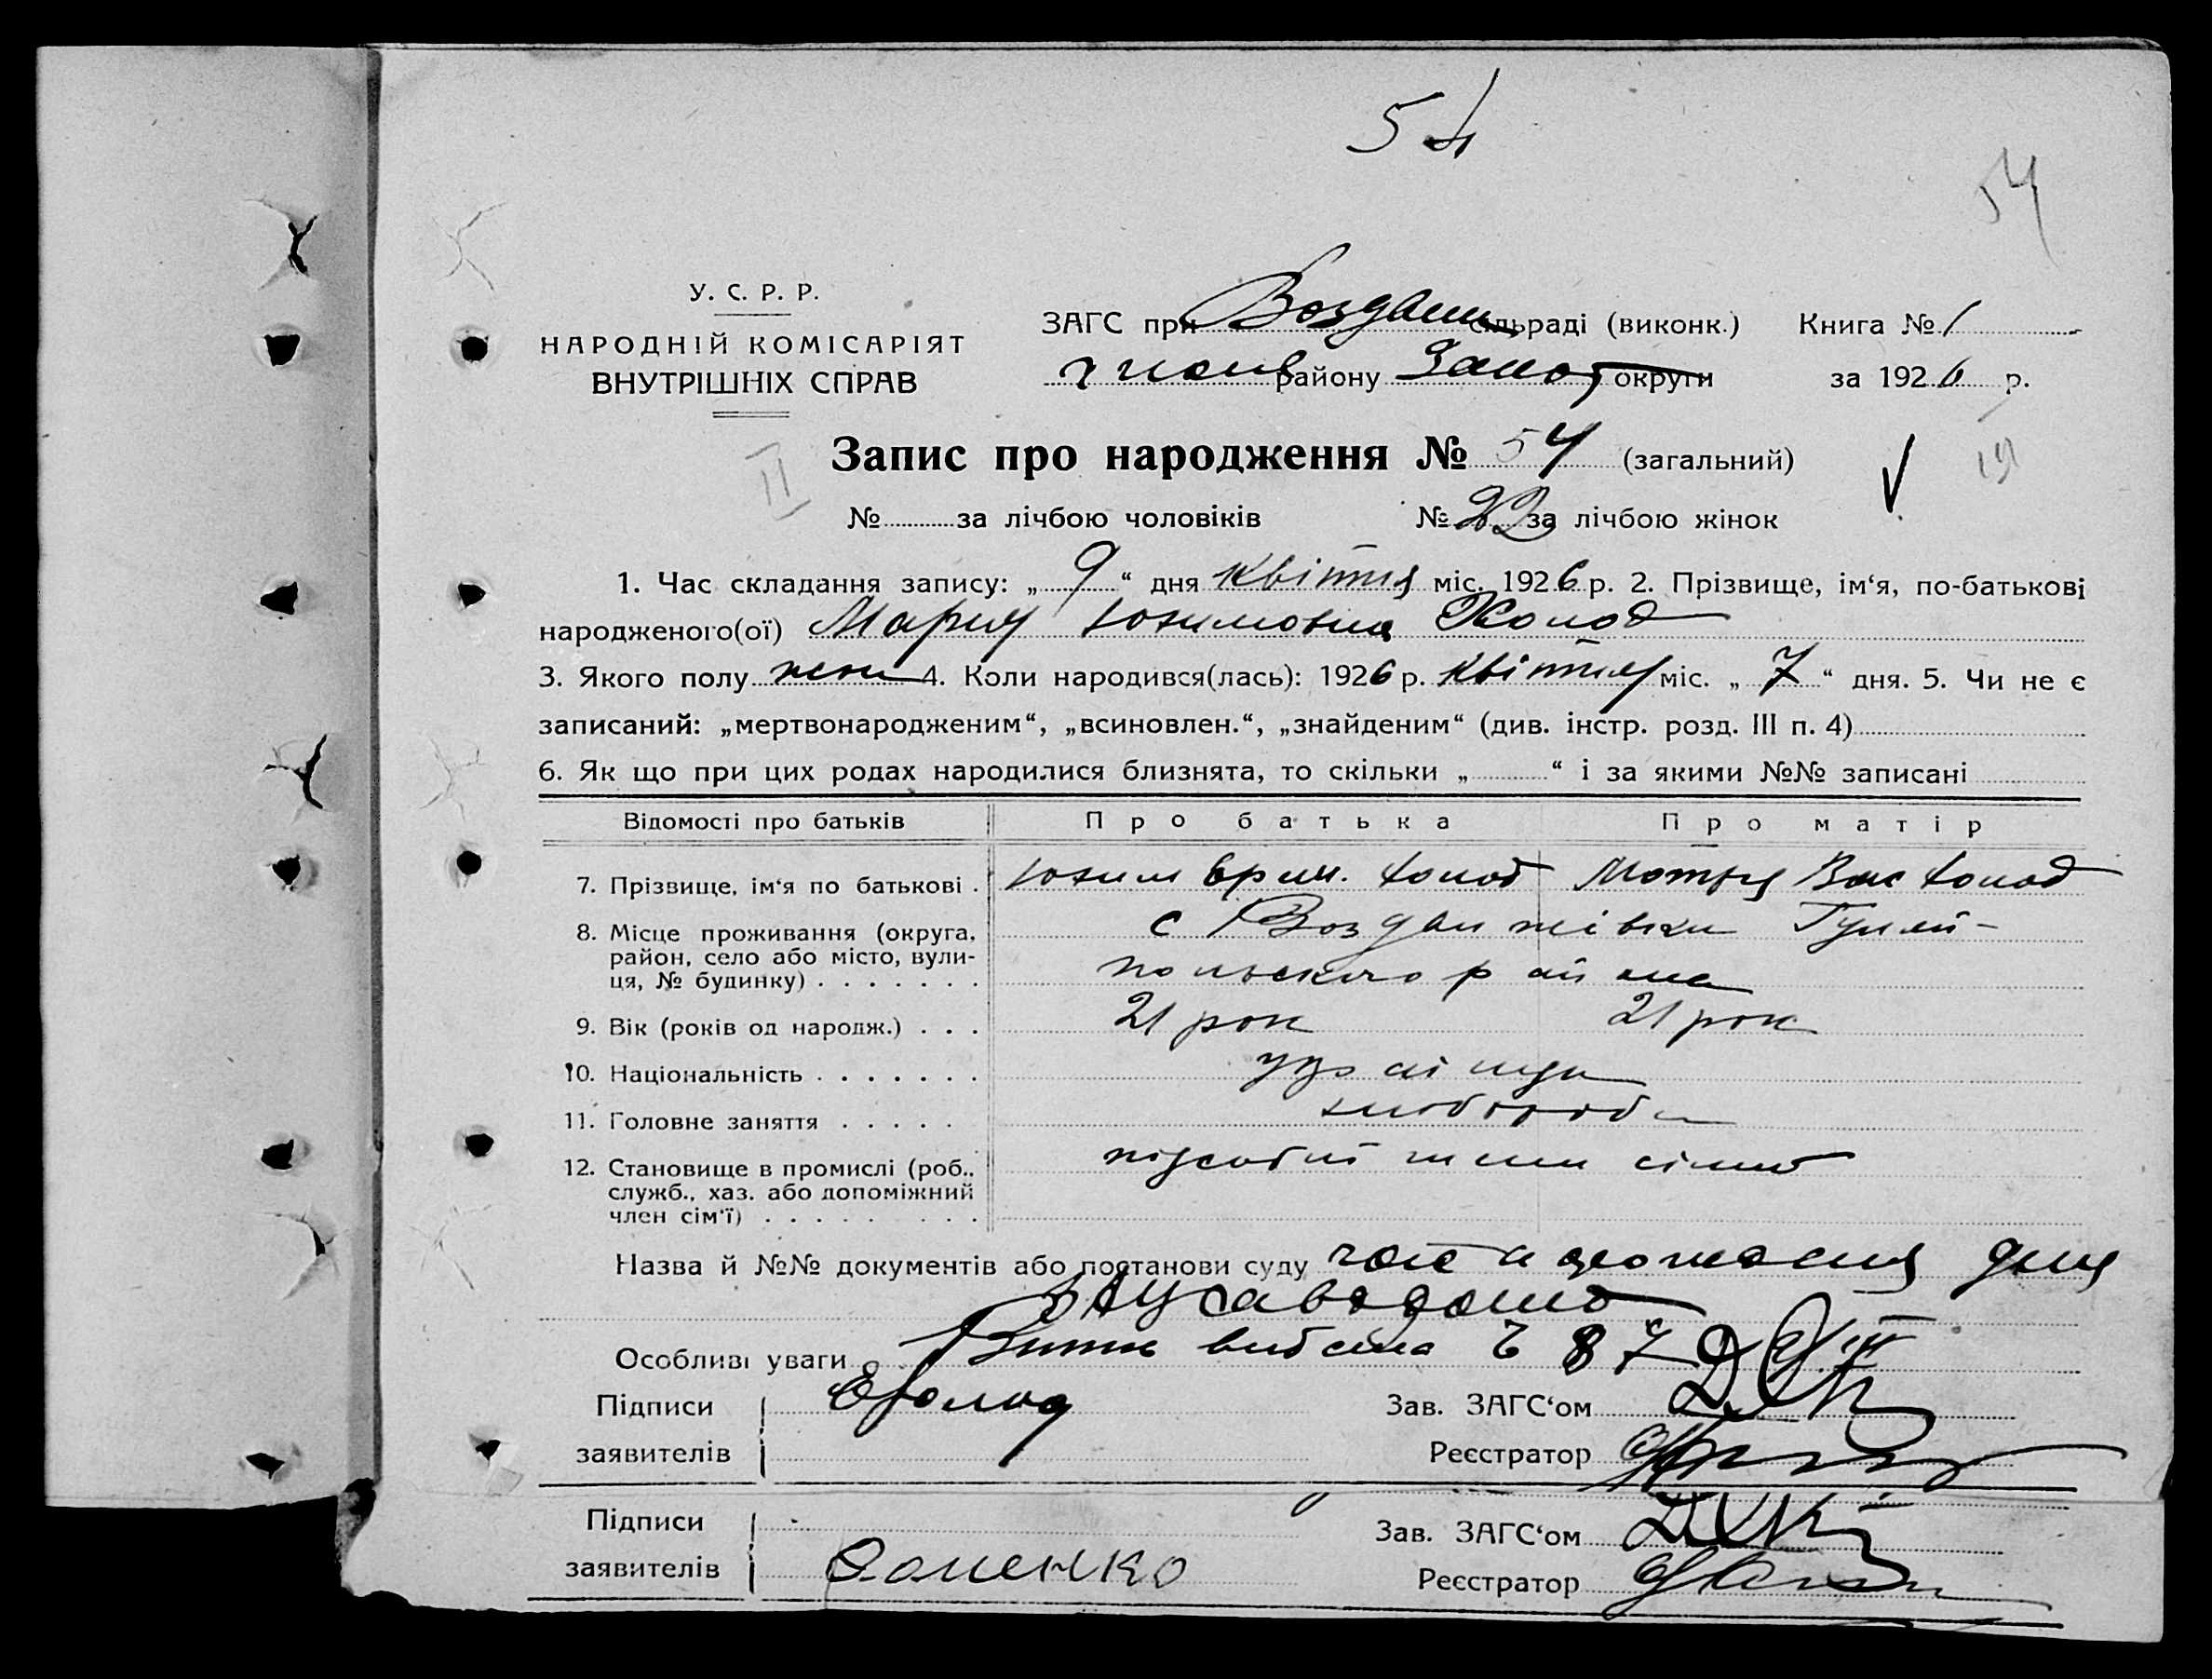 54
54
У. С. Р. Р.
НАРОДНІЙ КОМІСАРІЯТ
ВНУТРІШНІХ СПРАВ
ЗАГС при Воздвиж сільраді (виконк.) Книга № 1
району Запор округи за 1926 р.
II
Запис про народження № 54 (загальний)
№ за лічбою чоловіків № 22 за лічбою жінок
1. Час складання запису: „ 9 “ дня квітня міс. 1926 р. 2. Прізвище, ім‘я, по-батькові
народженого(ої) Мария Юхимовна Холод
3. Якого полу жен 4. Коли народився(лась): 1926 р. квітня міс. „ 7 “ дня. 5. Чи не є
записаний: „мертвонародженим“, „всиновлен.“, „знайденим“ (див. інстр. розд. III п. 4)
6. Як що при цих родах народилися близнята, то скільки „ “ і за якими №№ записані
Відомості про батьків Про батька Про матір
7. Прізвище, ім‘я по батькові . Юхим Холод Мотря Вас Холод
8. Місце проживання (округа, район, село або місто, вулиця, № будинку) с Воздвижівки Гуляй-
польского района
9. Вік (років од народж.) . . . 21 рок 21 рок
10. Національність . . . . . . . украінци
11. Головне заняття . . . . . хлібороби
12. Становище в промислі (роб., служб., хаз. або допоміжний член сім‘ї) . . . . .
Назва й №№ документів або постанови суду
Особливі уваги
Підписи Холод Зав. ЗАГС‘ом
заявителів Реєстратор
Підписи Зав. ЗАГС‘ом
заявителів Реєстратор